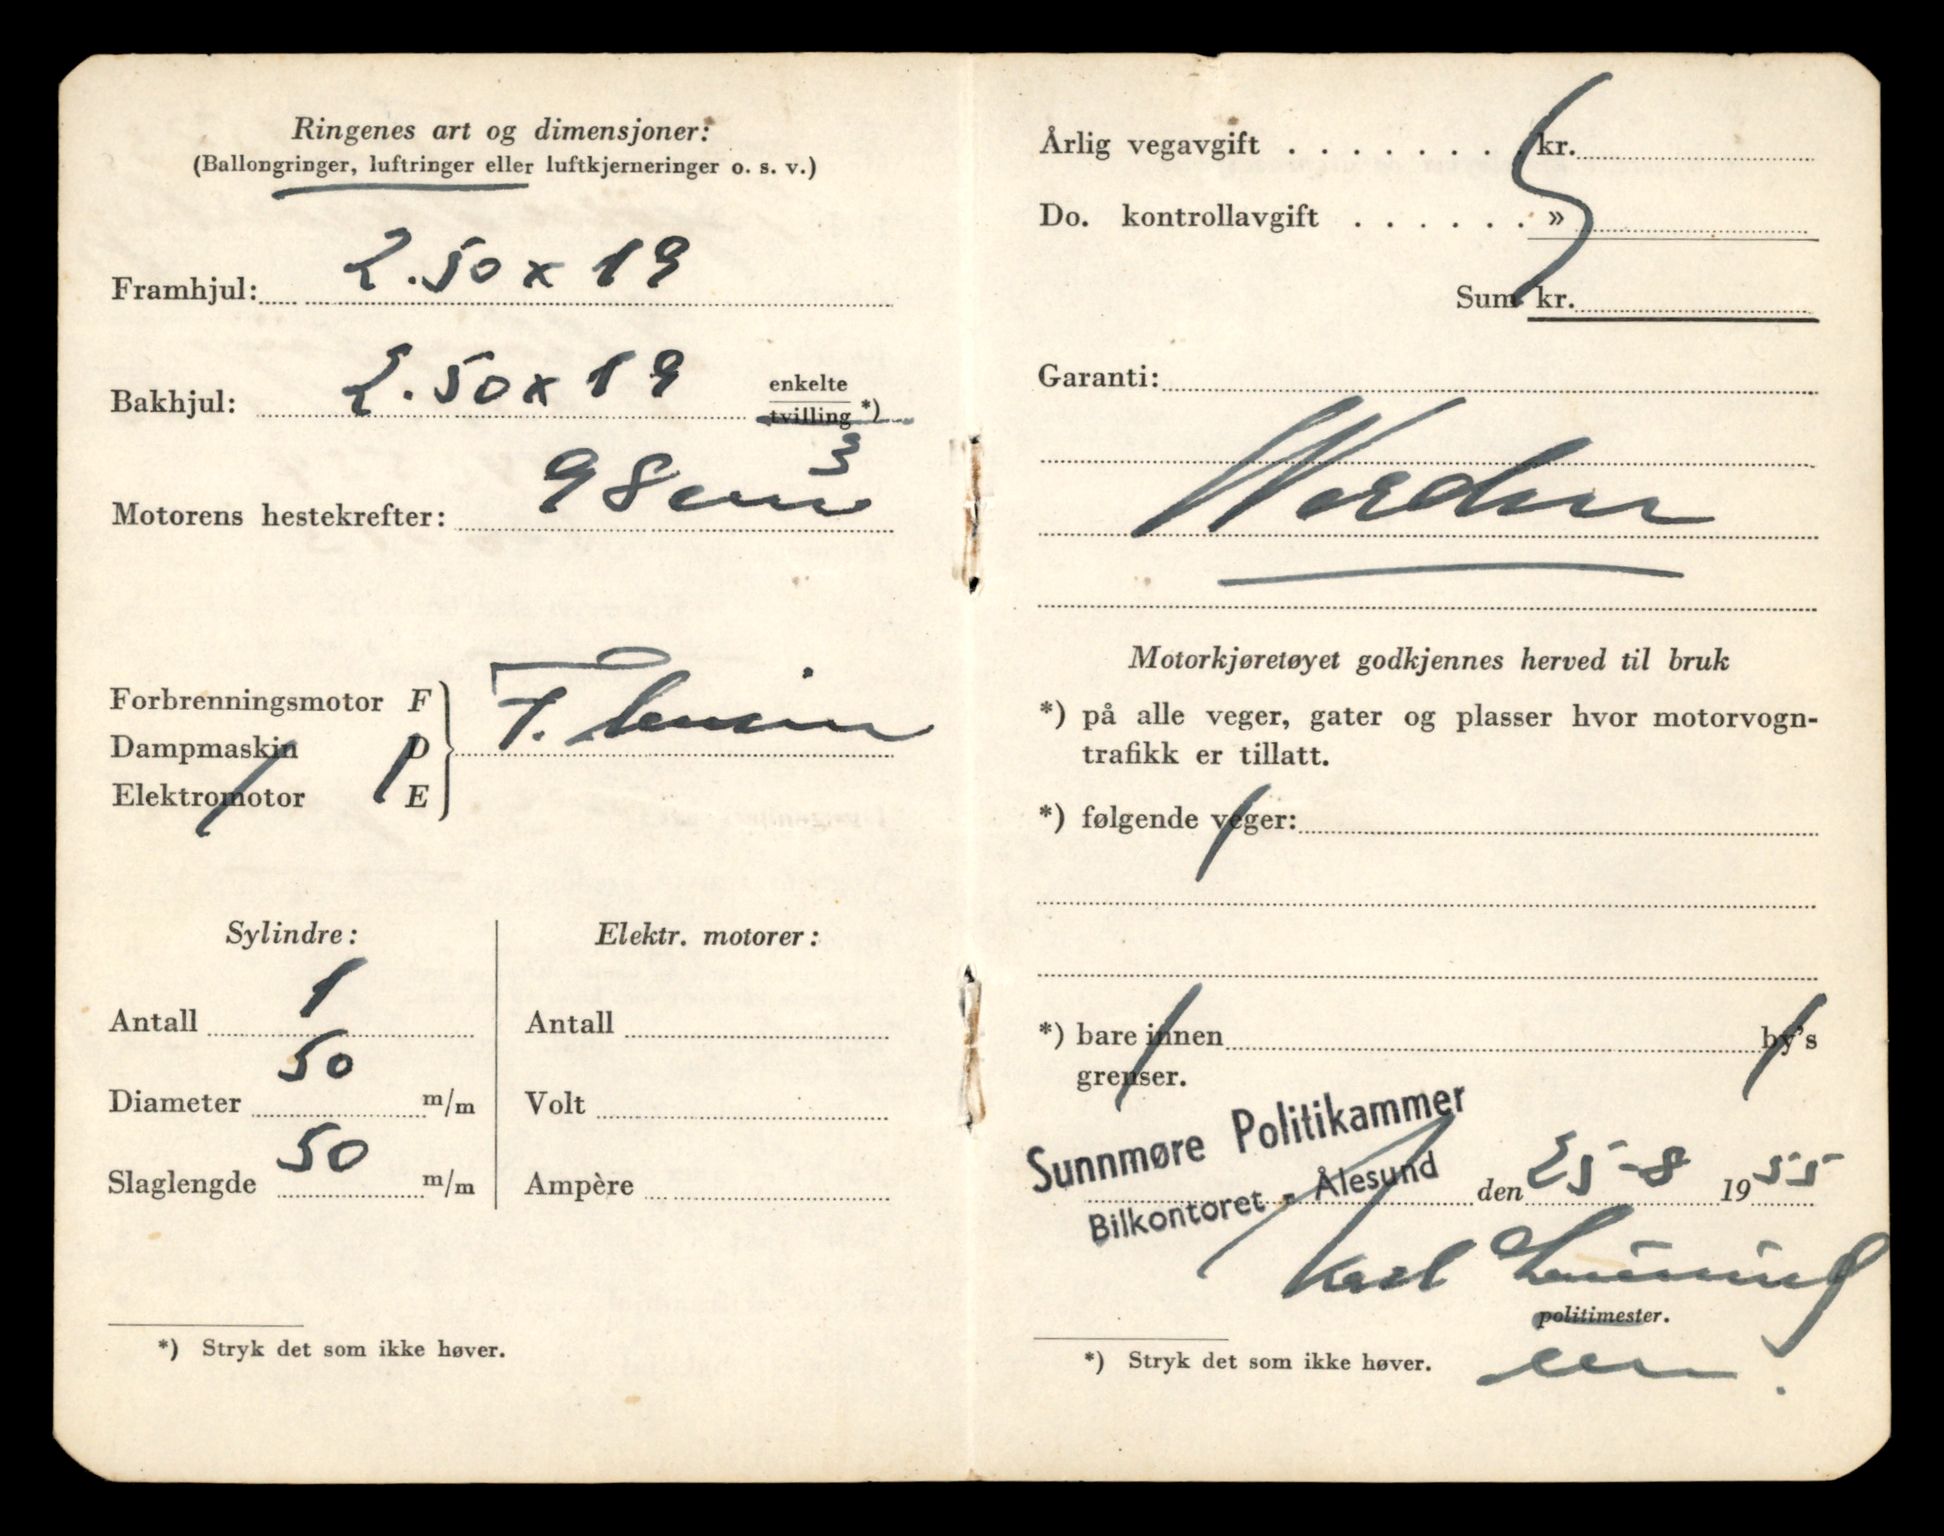 Ringenes art og dimensjoner:
(Ballongringer, luftringer eller luftkjerneringer o. s. v.)
Framhjul: 2.50 x 19
Bakhjul: 2.50 x 19 enkelte
tvilling *)
Motorens hestekrefter: 98 cm3
Forbrenningsmotor F
Dampmaskin D
Elektromotor E
F.
Sylindre:
Antall 1
Diameter 50 m/m
Slaglengde 50 m/m
Elektr. motorer:
Antall
Volt
Ampère
*) Stryk det som ikke høver.
Årlig vegavgift . . . . . . . . kr.
Do. kontrollavgift . . . . . . »
Sum kr.
Garanti:
Norden
Motorkjøretøyet godkjennes herved til bruk
*) på alle veger, gater og plasser hvor motorvogn-
trafikk er tillatt.
*) følgende veger:
*) bare innen by's
grenser.
Sunnmøre Politikammer
Bilkontoret - Ålesund
den 25-8 1955
Karl
politimester.
*) Stryk det som ikke høver.